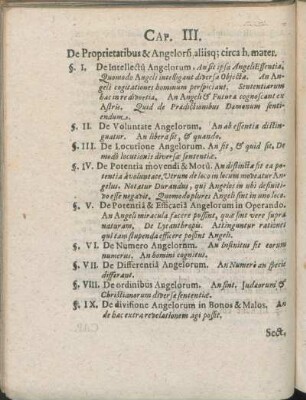 CAP. III.
De Proprietatibus & Angelorũ aliisq; circa h. mater.
§. I. De Intellectũ Angelorum. An sit ipsa Angeli Essentia,
Quomodo Angeli intelligant diversa Objecta. An An-
geli cogitationes hominum perspiciant, Sententiarum
hac in re divortia, An Angeli & Futura cognoscant ex
Astris. Quid de Prædictionibus Dæmonum senti-
endum.
§. II. De Voluntate Angelorum. An ab essentia distin-
guatur. An libera sit, & quando.
§. III. De Locutione Angelorum. An sit, & quid sit, De
modô locutionis diversæ sententiæ.
§. IV. De Potentia movendi & Motû. An distincta sit ea po-
tentia à voluntate, Utrum de loco in locum moveatur An-
gelus. Notatur Durandus, qui Angelos in ubi definiti-
vo esse negavit, Quomodo plures Angeli sint in uno loco.
§. V. De Potentiâ & Efficaciâ Angelorum in Operando.
An Angeli miracula facere possint, quæ sint vere supra
naturam, De Lycanthropia. Attinguntur rationes
qui tam stupenda efficere possint Angeli.
§. VI. De Numero Angelorum. An Infinitus sit eorum
numerus. An homini cognitus.
§. VII. De Differentiâ Angelorum. An Numerô an specie
differant.
§. VIII. De ordinibus Angelorum. An sint. Judæorum &
Christianorum diversæ sententiæ.
§. IX. De divisione Angelorum in Bonos & Malos. An
de hac extra revelationem agi possit.
Sect.